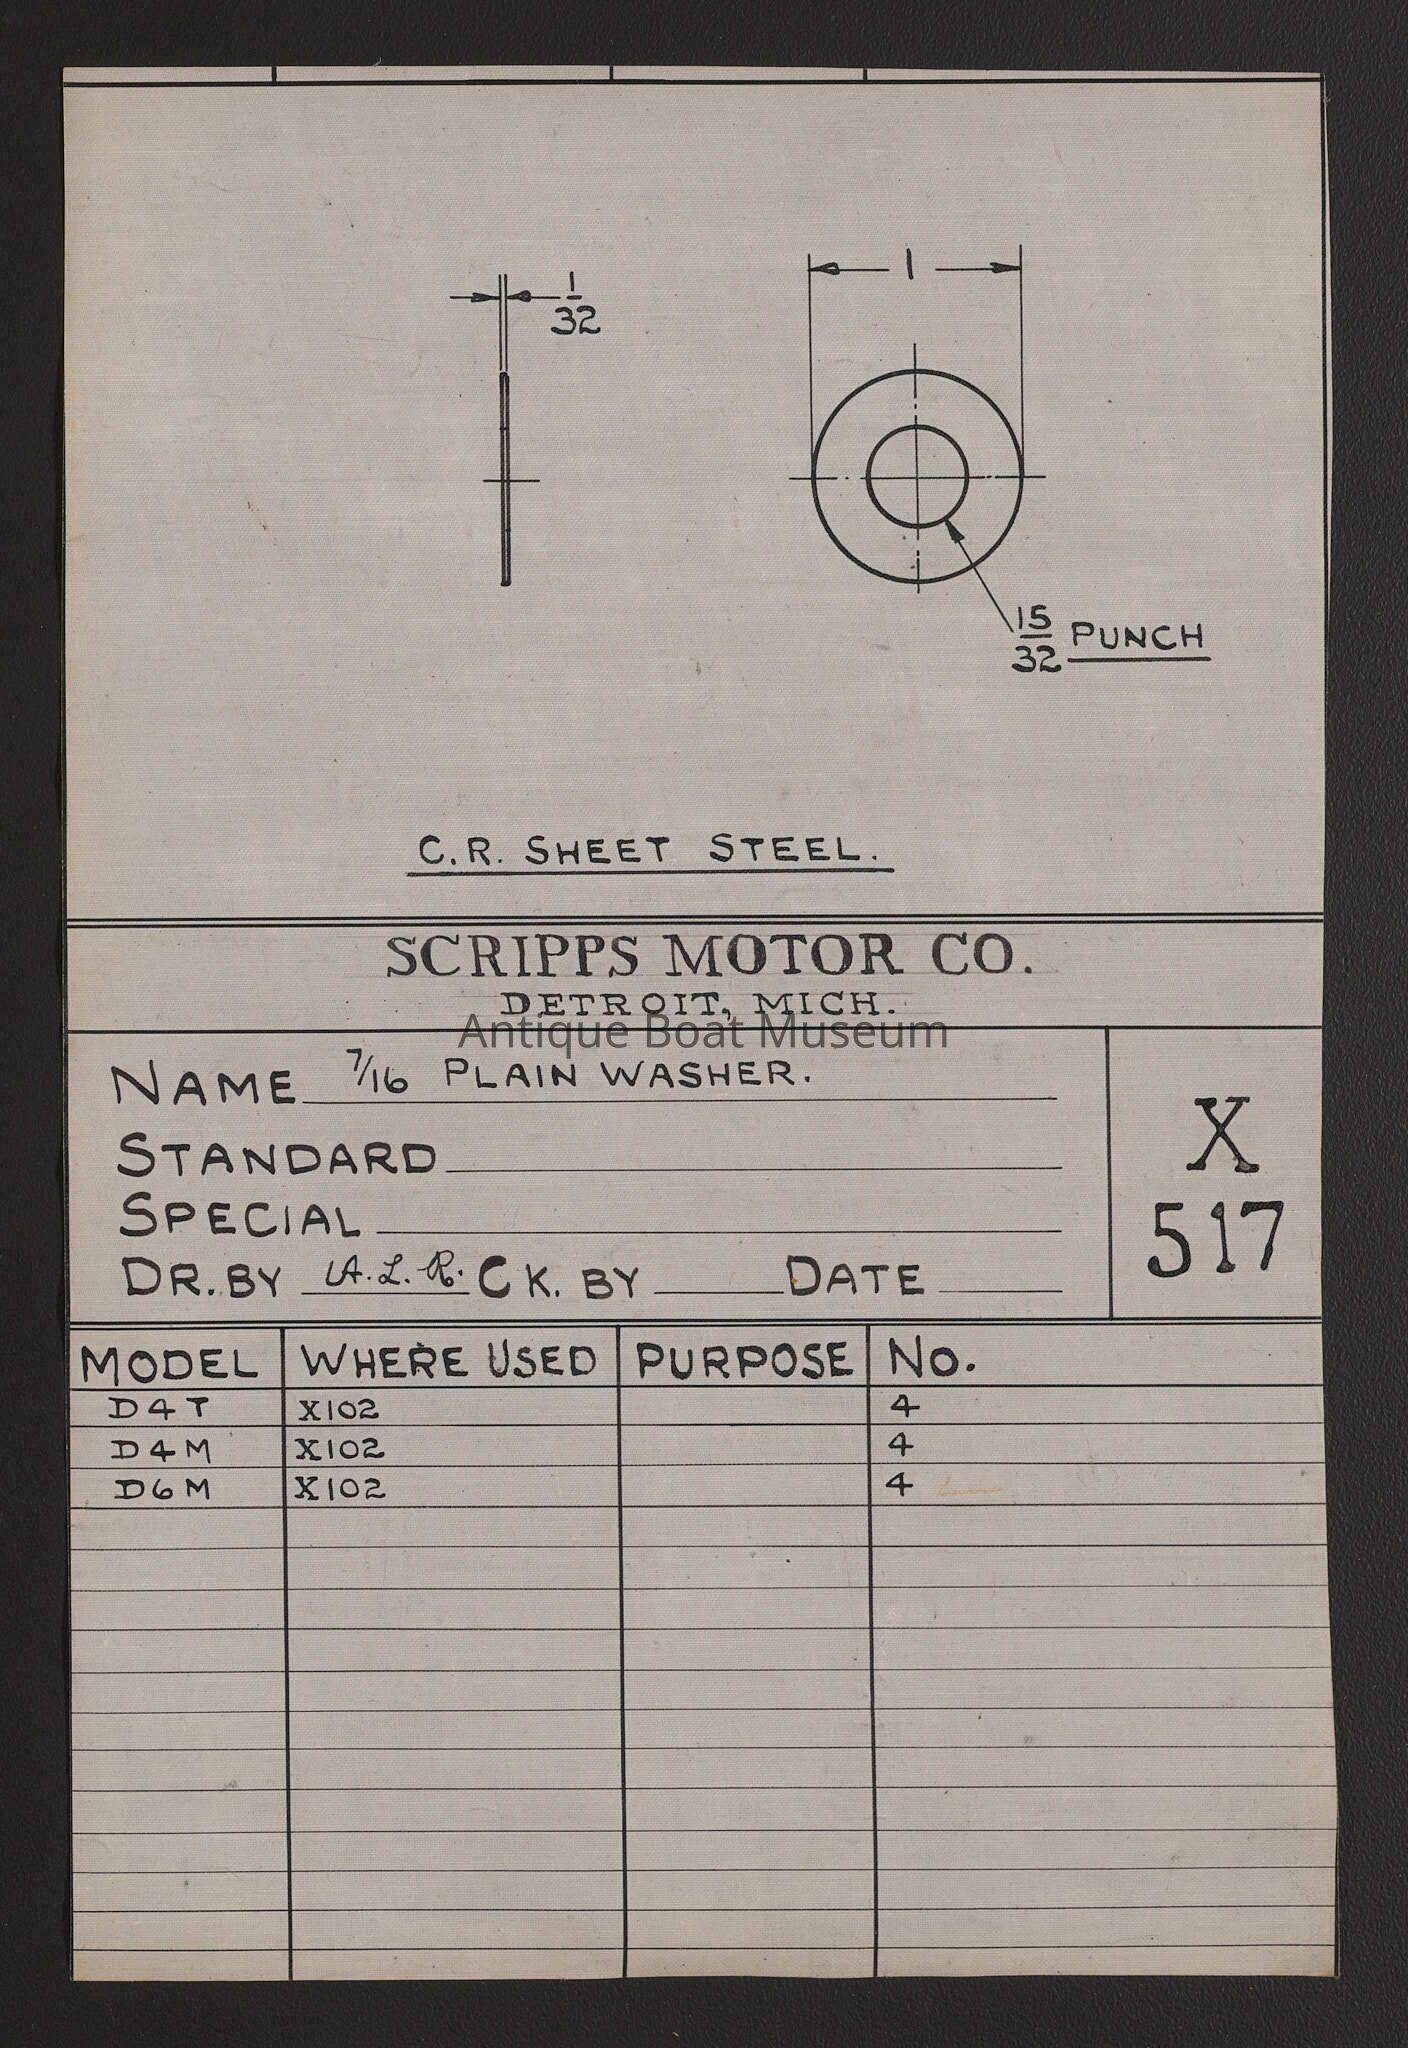 1/32
1
15/32 PUNCH
C.R. SHEET STEEL.
SCRIPPS MOTOR CO.
DETROIT, MICH.
Antique Boat Museum
NAME 7/16 PLAIN WASHER.
STANDARD
SPECIAL
DR. BY A.L.R. CK. BY DATE
X
517
MODEL WHERE USED PURPOSE NO.
D4T X102 4
D4M X102 4
D6M X102 4